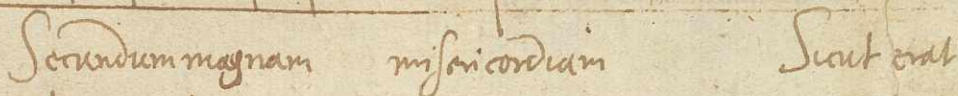 Secundum magnam misericordiam Sicut erat